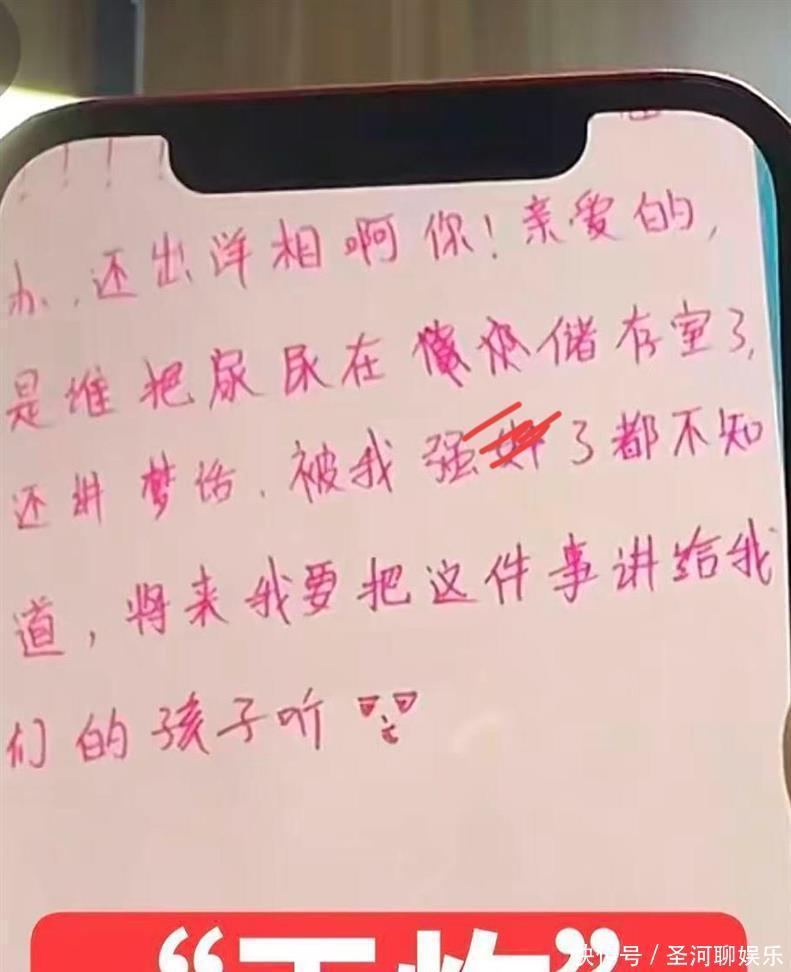 ！！！！
办，还出洋相啊你！亲爱的，
是谁把尿尿在储存室了，
还讲梦话，被我强奸了都不知
道，将来我要把这件事讲给我
们的孩子听
快传号／圣河聊娱乐